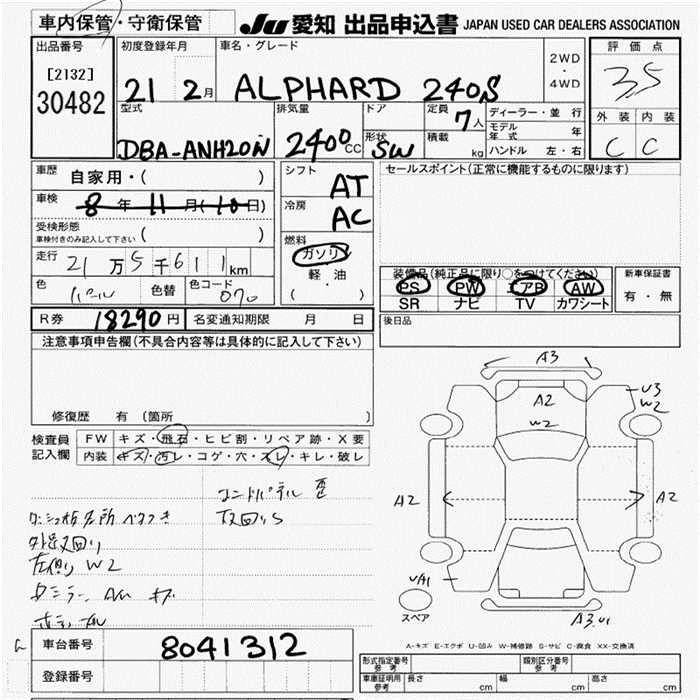 車内保管・守衛保管
JU 愛知 出品申込書 JAPAN USED CAR DEALERS ASSOCIATION
出品番号
[2132]
30482
初度登録年月
21 2月
車名・グレード
ALPHARD 240S
2WD
・
4WD
評価点
3,5
外装 内装
C C
型式
DBA-ANH20W
排気量
2400cc
ドア
形状
SW
定員
7人
積載
kg
ディーラー・並行
モデル年式 年
ハンドル 左・右
車歴
自家用・( )
車検
8年11月(10日)
受検形態
車検付きのみ記入して下さい ( )
走行
21万5千611km
色
パール
色替
色コード
070
シフト
AT
冷房
AC
燃料
ガソリン
軽・油
( )
セールスポイント(正常に機能するものに限ります)
装備品(純正品に限り○をつけてください)
PS PW エアB AW
SR ナビ TV カワシート
新車保証書
有・無
R券 18290円
名変通知期限 月 日
後日品
注意事項申告欄(不具合内容等は具体的に記入して下さい)
修復歴 有 (箇所 )
検査員
記入欄
FW キズ・飛石・ヒビ割・リペア跡・X要
内装 キズ・汚レ・コゲ・穴・スレ・キレ・破レ
コンドパネル
ベタつき
外足又回り
左側り W2
又回りS
A3
A2
W2
U3
W2
A2
A2
UA1
スペア
A3,U1
A-キズ E-エクボ U-凹み W-補修跡 S-サビ C-腐食 XX-交換済
車台番号 8041312
登録番号
形式指定番号
参考
類別区分番号
参考
車庫証明用
参考
長さ cm
幅 cm
高さ cm